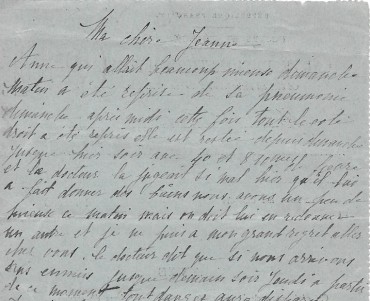 Ma chère Jeanne
Anne qui allait beaucoup mieux dimanche
matin a été reprise de sa pneumonie
dimanche après midi cette fois tout le côté
droit a été repris elle est restée depuis dimanche
jusque hier soir avec 40 et 8
et sa docteur la jugeait si mal hier qu'il lui
a fait donner des bains nous avons un peu de
mieux ce matin mais on doit lui en redonner
un autre et je ne puis à mon grand regret aller
chez vous. le docteur dit que si nous arrivons
sans ennuis jusque demain soir Jeudi à partir
de ce moment tout danger aura disparu